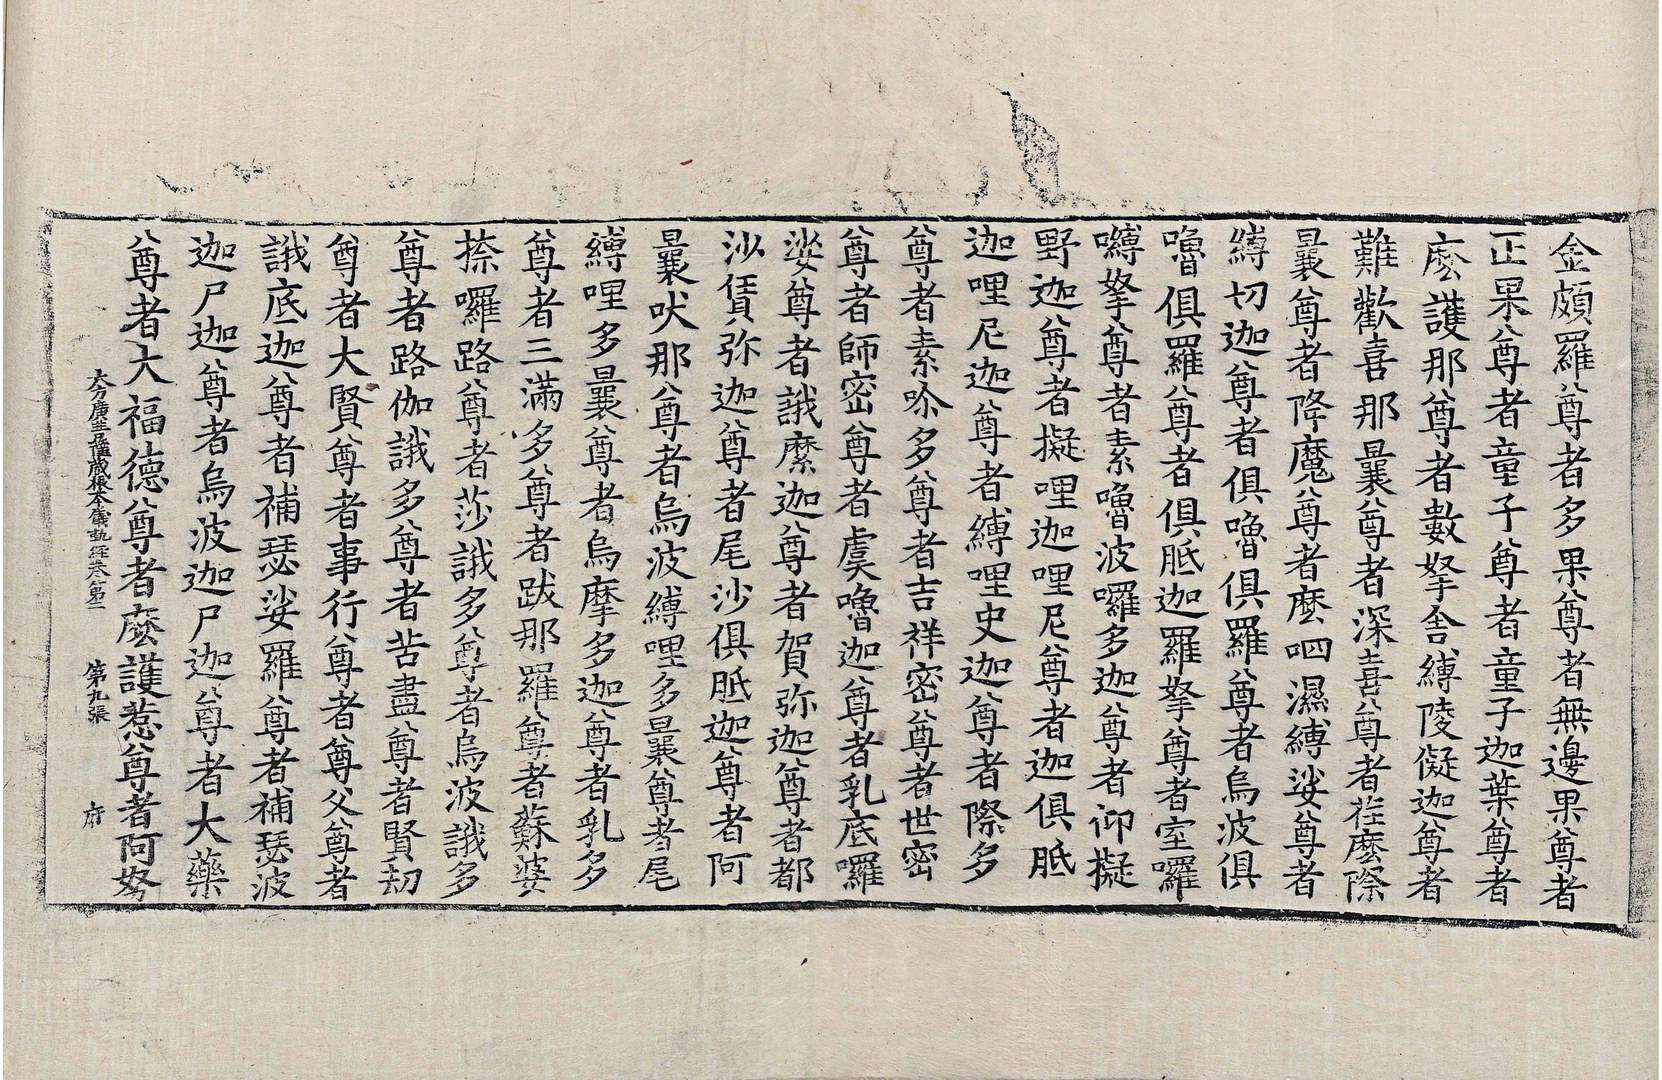 金頗羅尊者多果尊者無邊果尊者
正果尊者童子尊者童子迦葉尊者
麽護那尊者數拏舍縛陵儗迦尊者
難歡喜那曩尊者深喜尊者在麽際
曩尊者降魔尊者麽呬濕縛娑尊者
縛切迦尊者俱嚕俱羅尊者烏波俱
嚕俱羅尊者俱胝迦羅拏尊者室囉
嚩拏尊者素嚕波囉多迦尊者仰擬
野迦尊者擬哩迦哩尼尊者迦俱胝
迦哩尼迦尊者縛哩史迦尊者際多
尊者素哆多尊者吉祥密尊者世密
尊者師密尊者虞嚕迦尊者乳底囉
娑尊者誐縻迦尊者賀弥迦尊者都
沙賃弥迦尊者尾沙俱胝迦尊者阿
曩吠那尊者烏波縛哩多曩尊者尾
縛哩多曩尊者烏摩多迦尊者乳多
尊者三滿多尊者跋那羅尊者蘇婆
捺囉路尊者莎誐多尊者烏波誐多
尊者路伽誐多尊者苦盡尊者賢劫
尊者大賢尊者事行尊者尊父尊者
誐底迦尊者補瑟娑羅尊者補瑟波
迦尸迦尊者烏波迦尸迦尊者大藥
尊者大福德尊者麽護惹尊者阿努
大方廣菩薩藏根本儀軌經卷第二　第九張　府